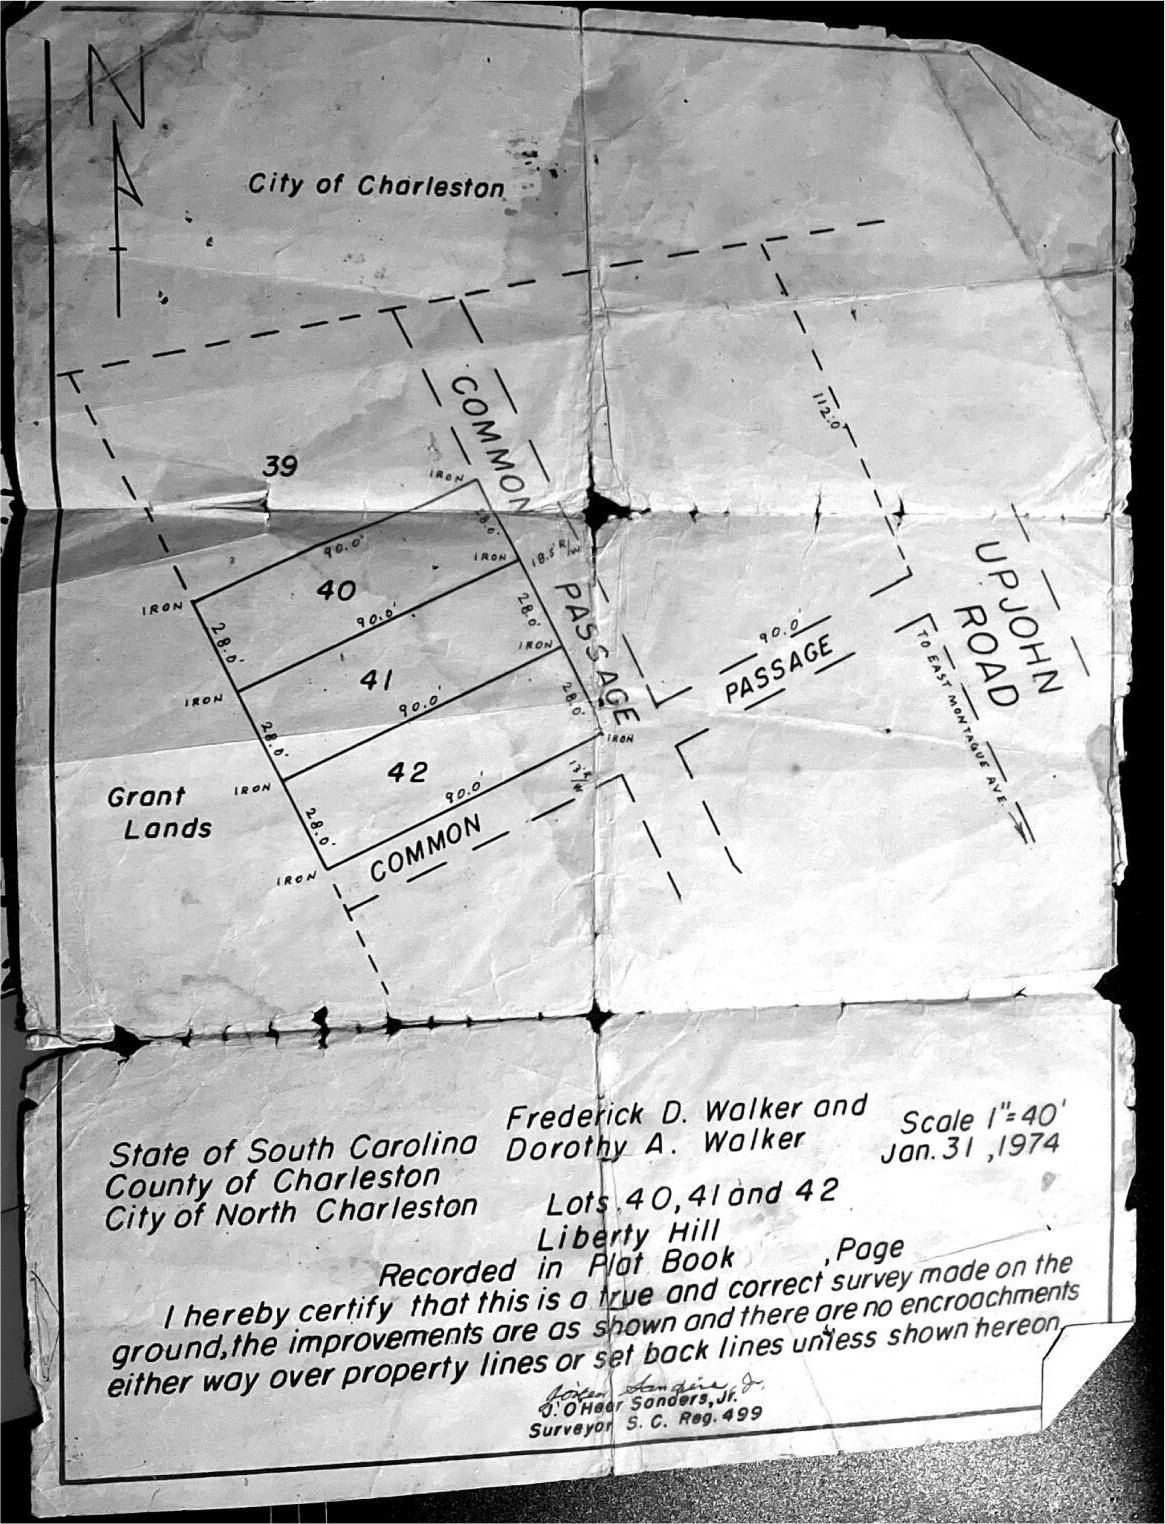 N
City of Charleston
COMMON
PASSAGE
112.0'
39
IRON
90.0'
28.0'
IRON
18.5' R/W
40
IRON
90.0'
28.0'
28.0'
IRON
41
IRON
90.0'
28.0'
28.0'
IRON
42
IRON
90.0'
28.0'
IRON
13' R/W
COMMON
90.0'
PASSAGE
UPJOHN
ROAD
TO EAST MONTAGUE AVE.
Grant
Lands
Frederick D. Walker and
Dorothy A. Walker
Scale 1"=40'
Jan. 31, 1974
State of South Carolina
County of Charleston
City of North Charleston
Lots 40, 41 and 42
Liberty Hill
Recorded in Plat Book , Page
I hereby certify that this is a true and correct survey made on the
ground, the improvements are as shown and there are no encroachments
either way over property lines or set back lines unless shown hereon.
J. O'Hear Sanders, Jr.
Surveyor S. C. Reg. 499